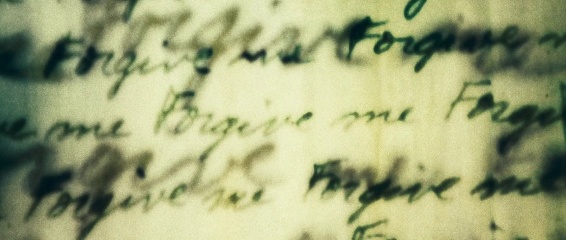 Forgive me Forgive
me Forgive me
Forgive me Forgive me